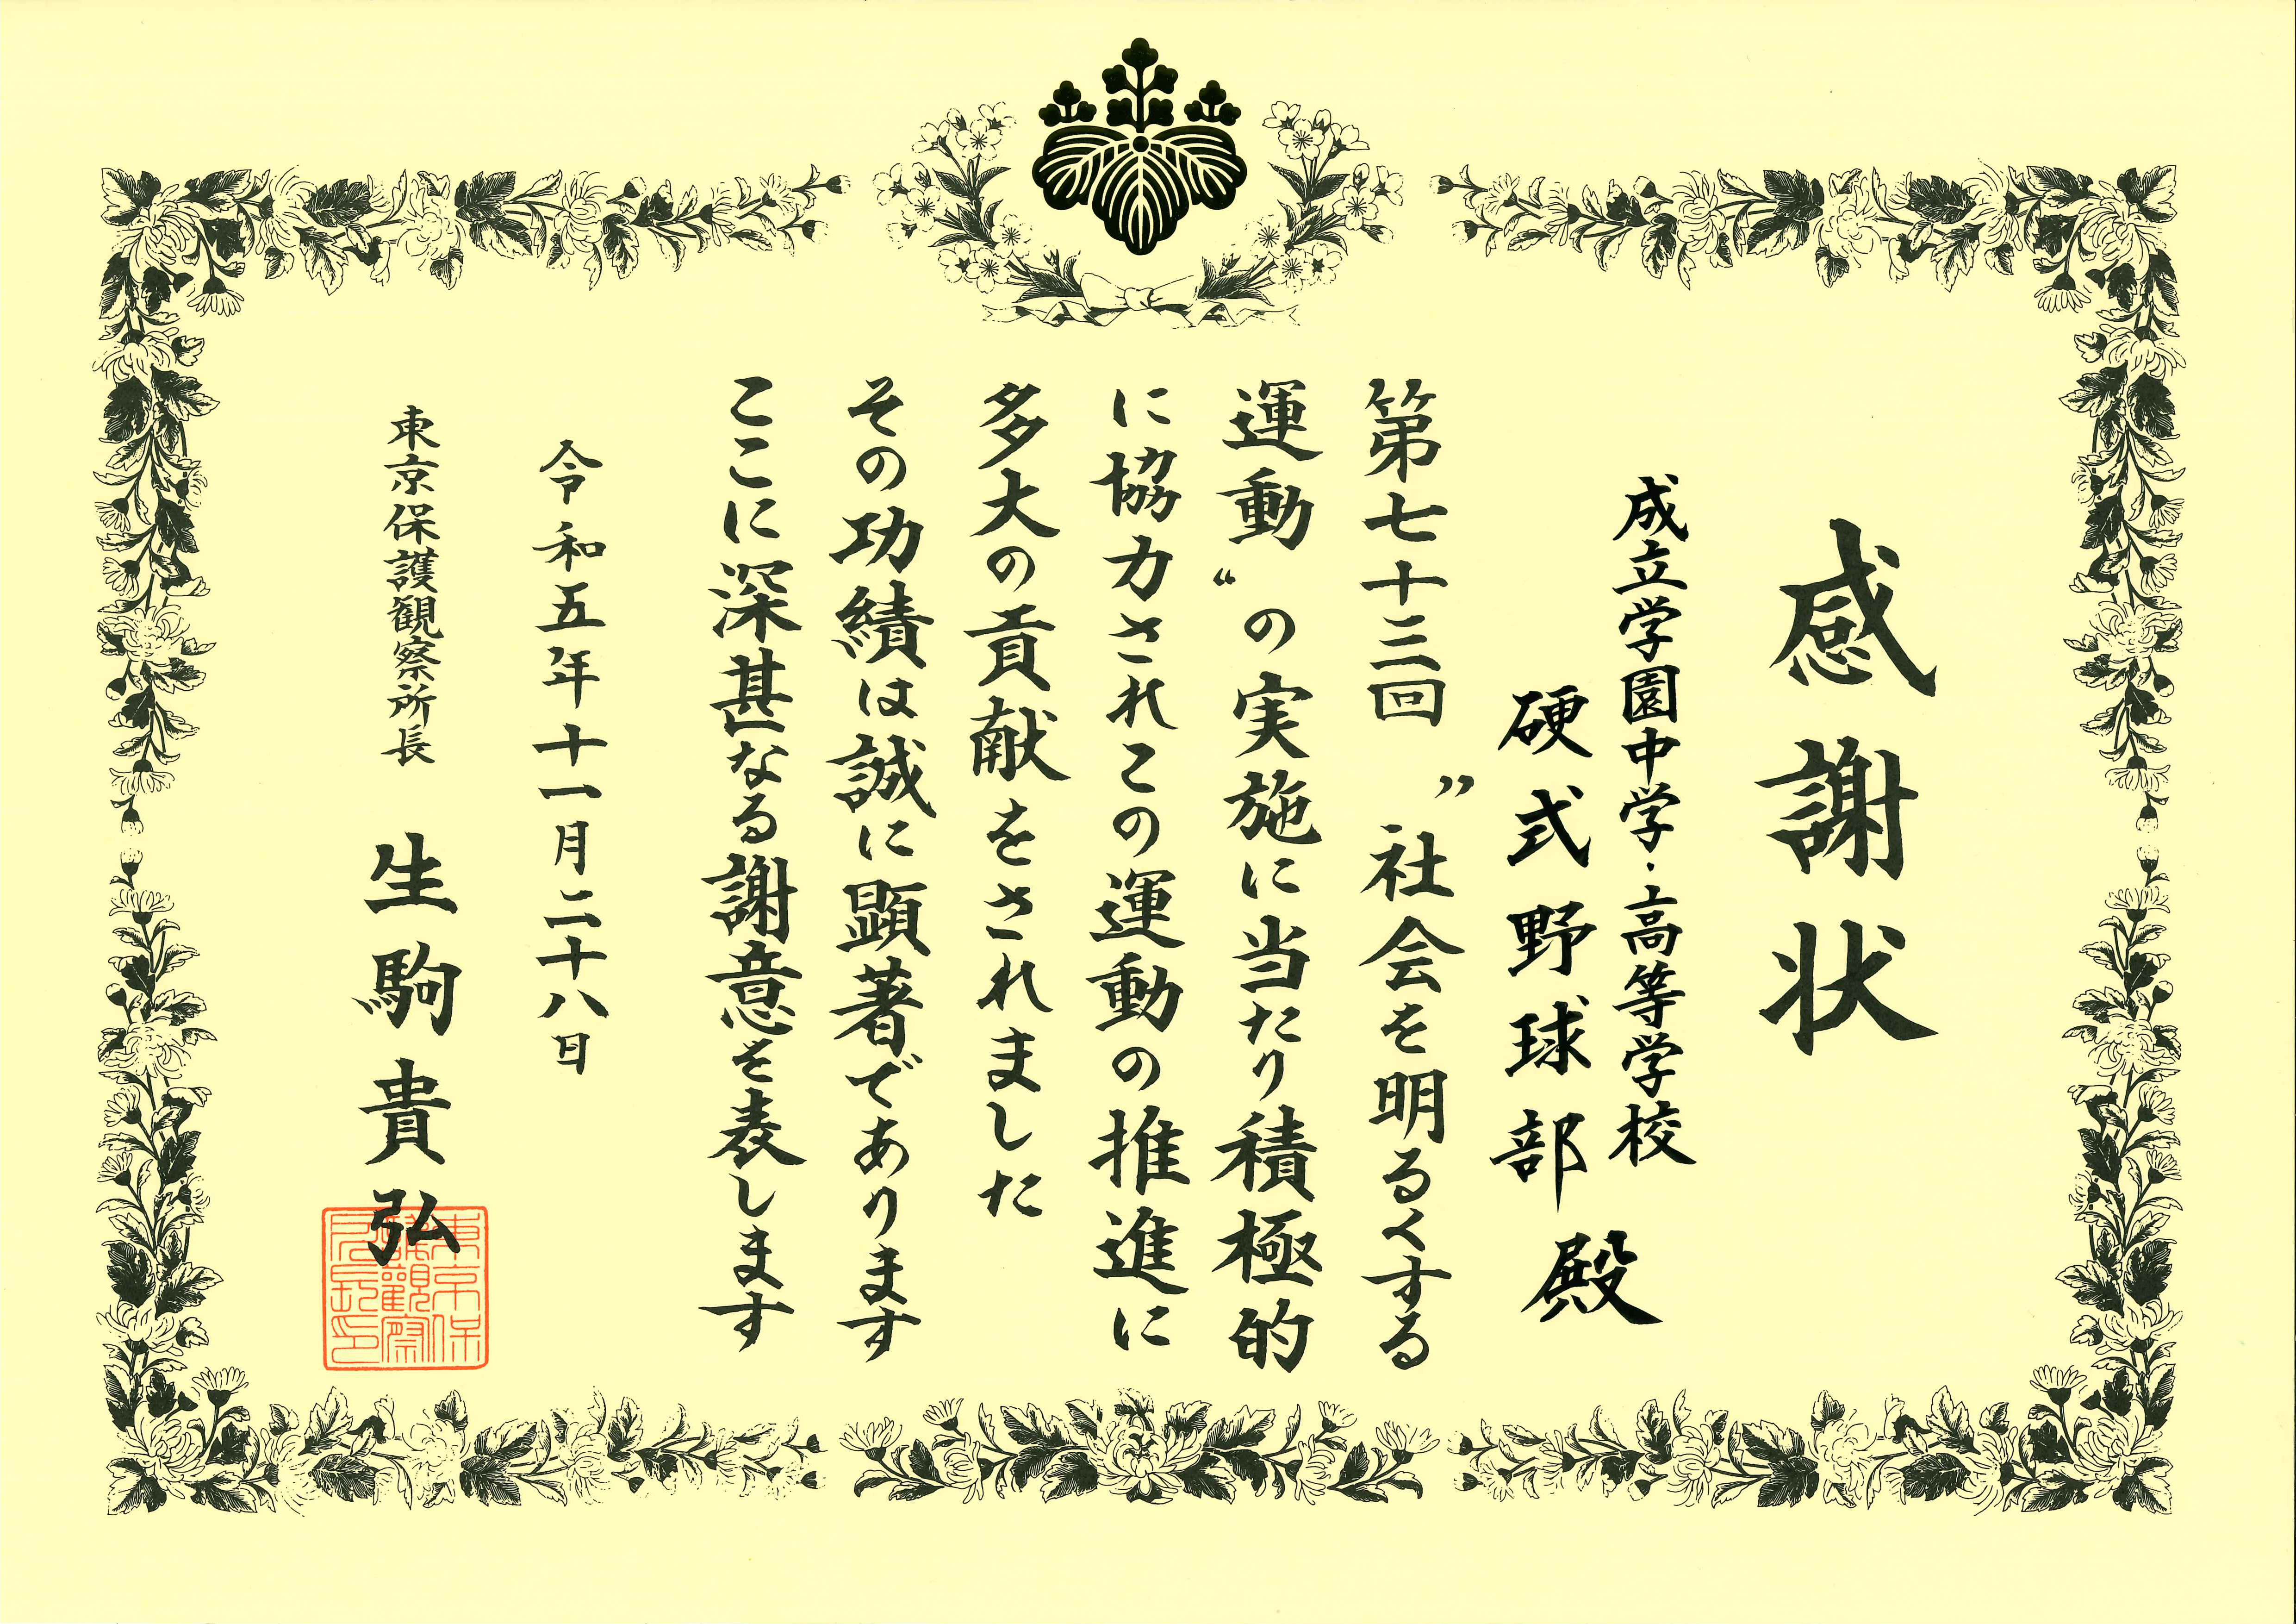 感謝状
成立学園中学・高等学校
硬式野球部殿
第七十三回 〝社会を明るくする
運動〟の実施に当たり積極的
に協力されこの運動の推進に
多大の貢献をされました
その功績は誠に顕著であります
ここに深甚なる謝意を表します
令和五年十一月二十八日
東京保護観察所長 生駒貴弘
東京保
護観察
所長印